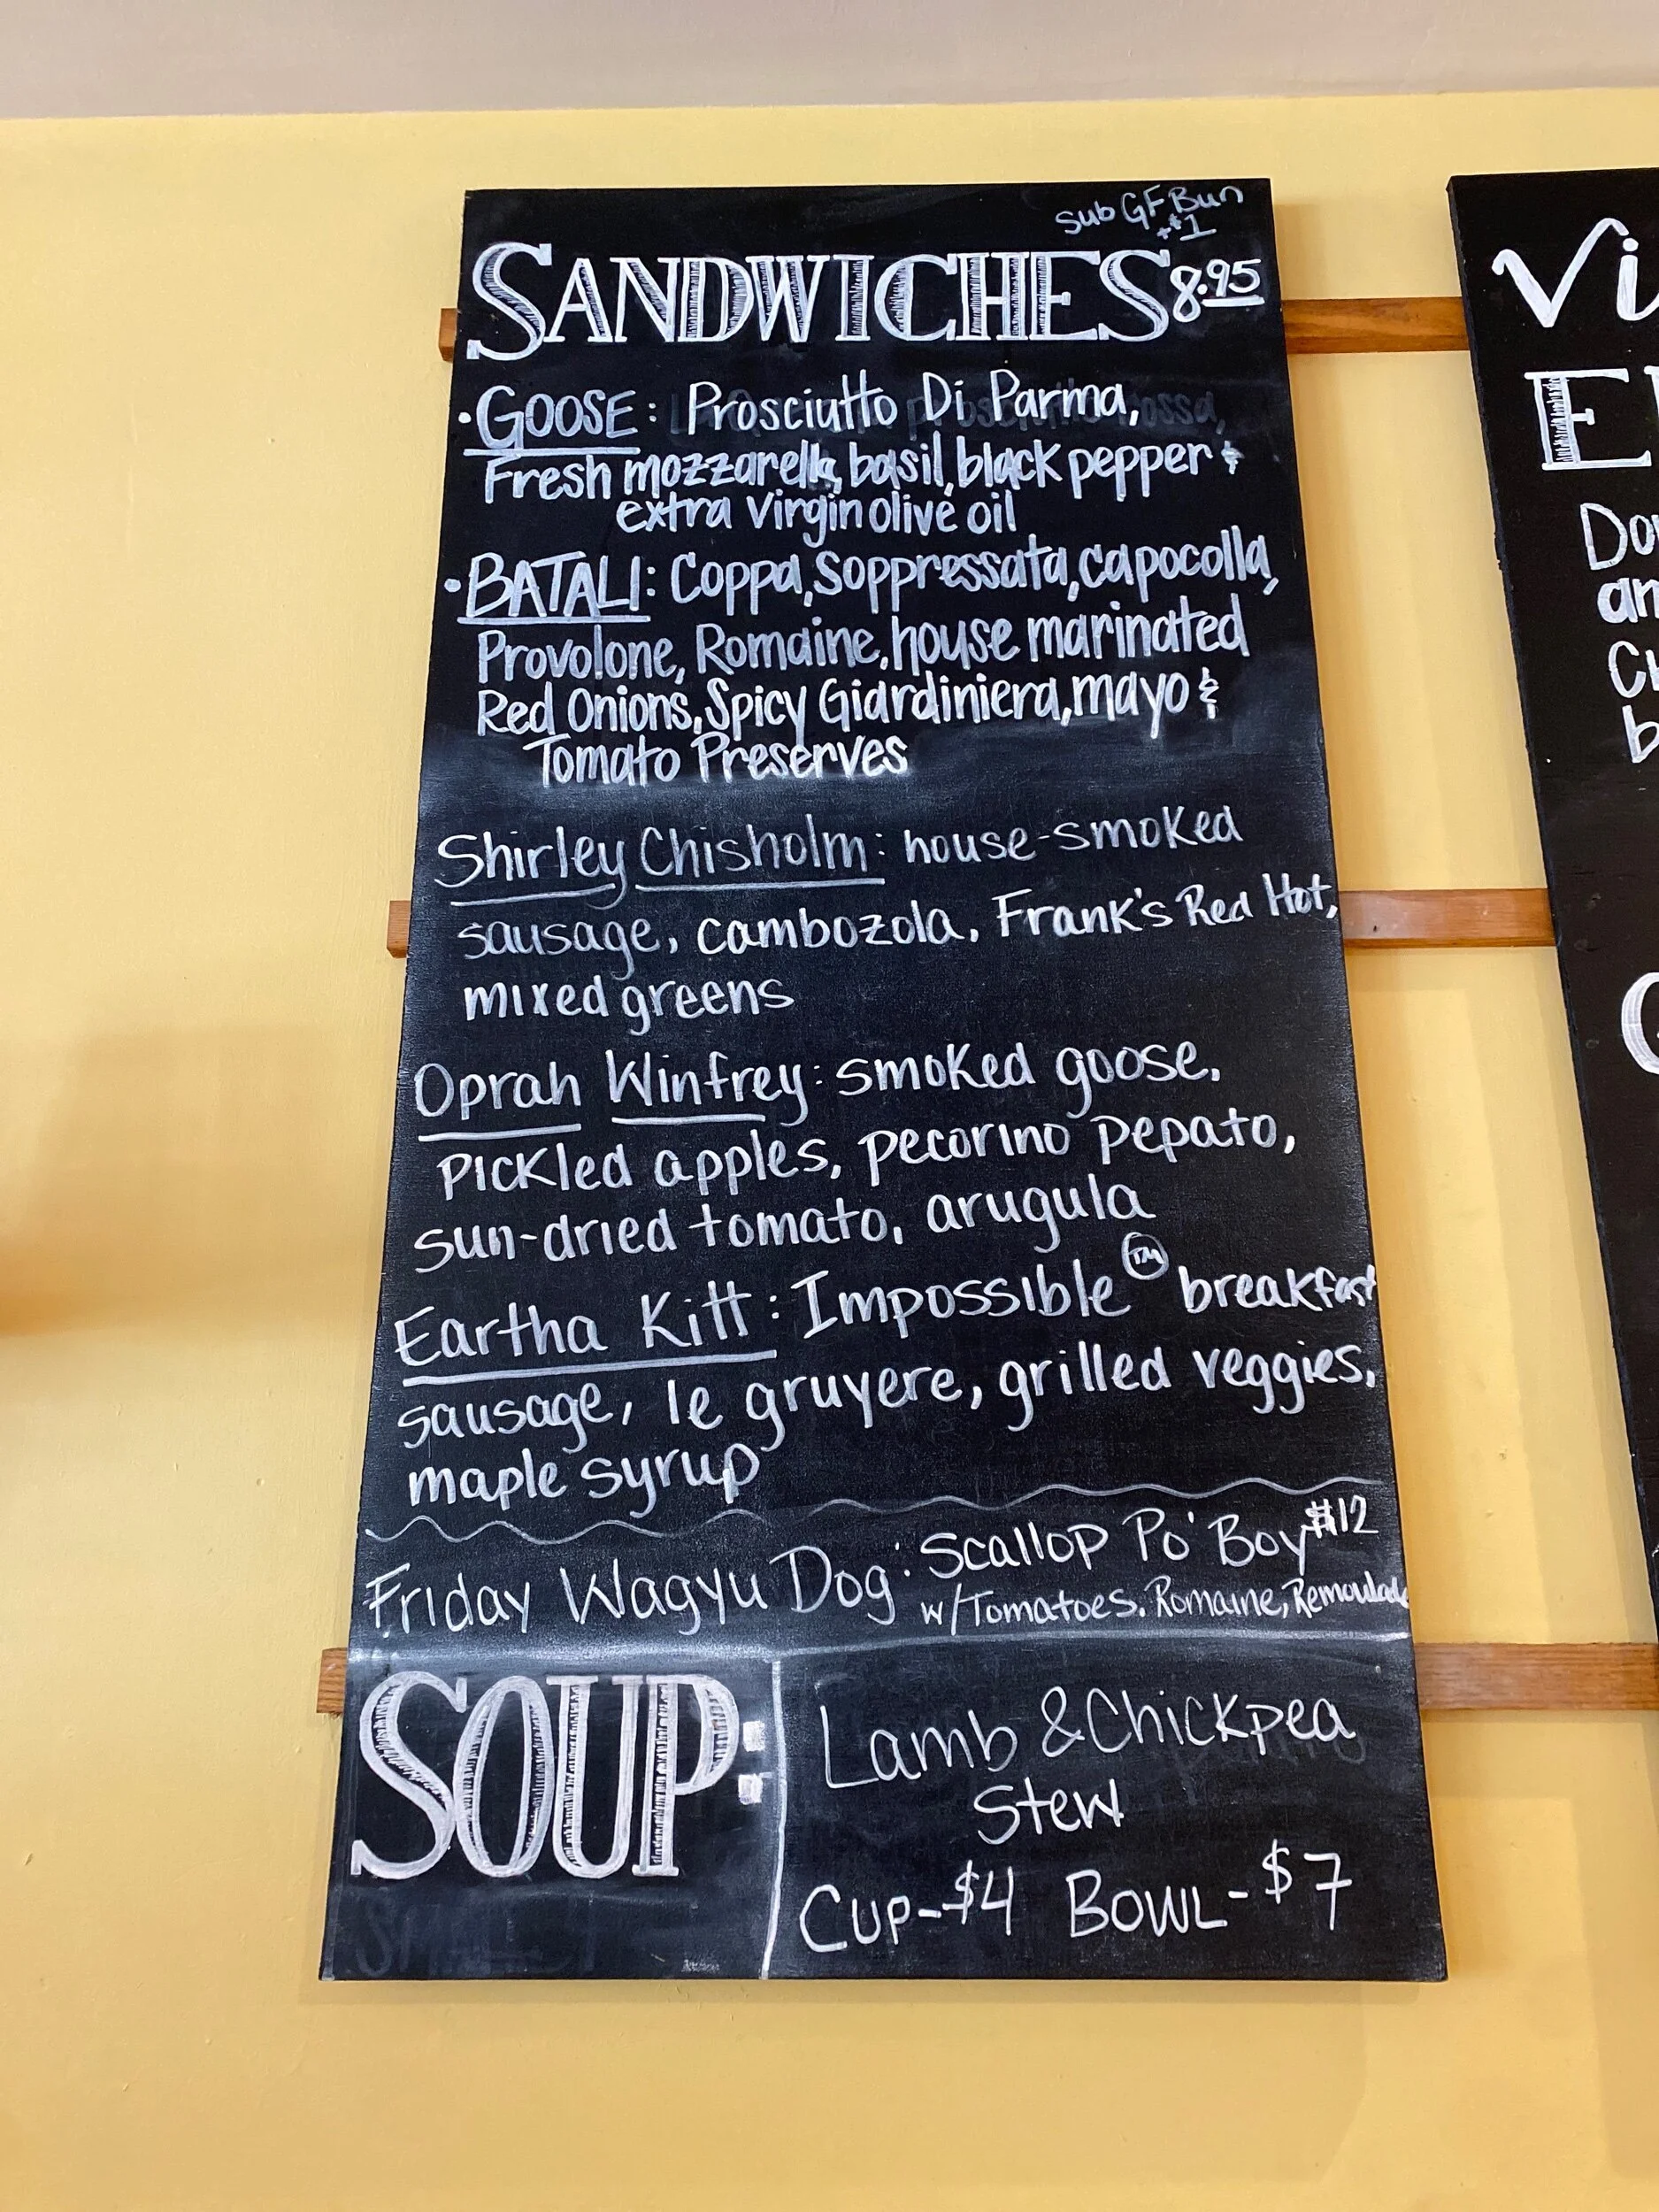 sub GF Bun
+$1
SANDWICHES 8.95
• GOOSE: Prosciutto Di Parma,
Fresh mozzarella, basil, black pepper &
extra virgin olive oil
• BATALI: Coppa, Soppressata, capocolla,
Provolone, Romaine, house marinated
Red Onions, Spicy Giardiniera, mayo &
Tomato Preserves
Shirley Chisholm: house-smoked
sausage, cambozola, Frank's Red Hot,
mixed greens
Oprah Winfrey: smoked goose,
pickled apples, pecorino pepato,
sun-dried tomato, arugula
Eartha Kitt: Impossible ™ breakfast
sausage, le gruyere, grilled veggies,
maple syrup
Friday Wagyu Dog: Scallop Po' Boy $12
w/Tomatoes, Romaine, Remoulade
SOUP:
Lamb & Chickpea
Stew
Cup-$4 Bowl-$7
Vi
E
Do
an
Ch
b